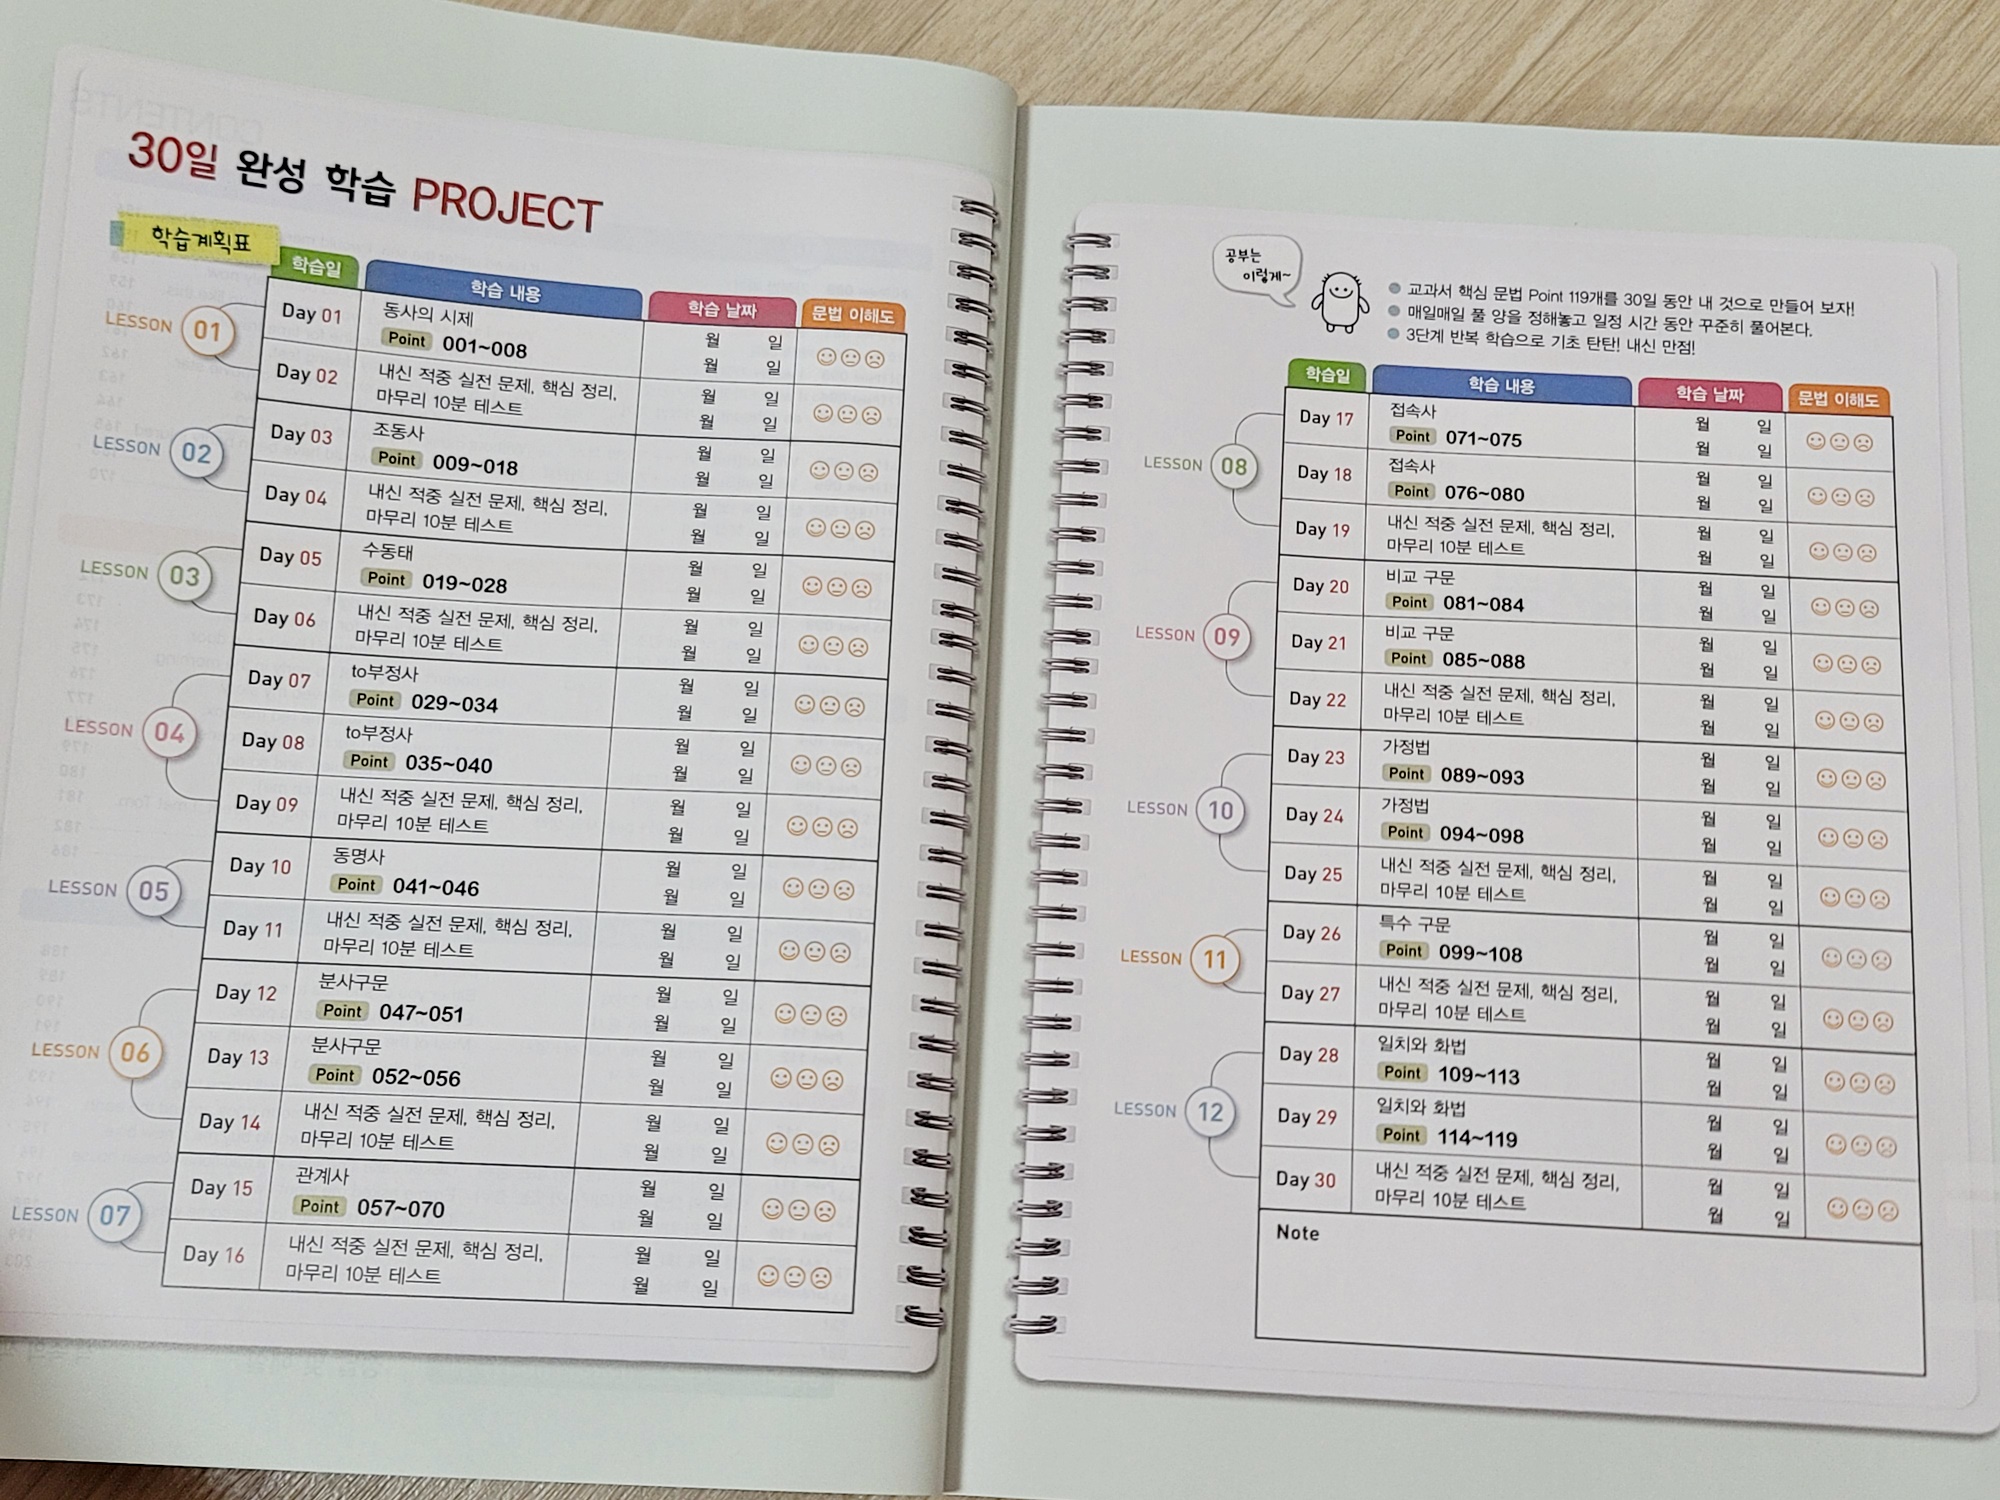 30일 완성 학습 PROJECT
학습계획표
학습일 학습 내용 학습 날짜 문법 이해도
LESSON 01
Day 01 동사의 시제 월 일
Point 001~008 월 일
Day 02 내신 적중 실전 문제, 핵심 정리, 월 일
마무리 10분 테스트 월 일
LESSON 02
Day 03 조동사 월 일
Point 009~018 월 일
Day 04 내신 적중 실전 문제, 핵심 정리, 월 일
마무리 10분 테스트 월 일
LESSON 03
Day 05 수동태 월 일
Point 019~028 월 일
Day 06 내신 적중 실전 문제, 핵심 정리, 월 일
마무리 10분 테스트 월 일
LESSON 04
Day 07 to부정사 월 일
Point 029~034 월 일
Day 08 to부정사 월 일
Point 035~040 월 일
Day 09 내신 적중 실전 문제, 핵심 정리, 월 일
마무리 10분 테스트 월 일
LESSON 05
Day 10 동명사 월 일
Point 041~046 월 일
Day 11 내신 적중 실전 문제, 핵심 정리, 월 일
마무리 10분 테스트 월 일
LESSON 06
Day 12 분사구문 월 일
Point 047~051 월 일
Day 13 분사구문 월 일
Point 052~056 월 일
Day 14 내신 적중 실전 문제, 핵심 정리, 월 일
마무리 10분 테스트 월 일
LESSON 07
Day 15 관계사 월 일
Point 057~070 월 일
Day 16 내신 적중 실전 문제, 핵심 정리, 월 일
마무리 10분 테스트 월 일
공부는
이렇게~
교과서 핵심 문법 Point 119개를 30일 동안 내 것으로 만들어 보자!
매일매일 풀 양을 정해놓고 일정 시간 동안 꾸준히 풀어본다.
3단계 반복 학습으로 기초 탄탄! 내신 만점!
학습일 학습 내용 학습 날짜 문법 이해도
LESSON 08
Day 17 접속사 월 일
Point 071~075 월 일
Day 18 접속사 월 일
Point 076~080 월 일
Day 19 내신 적중 실전 문제, 핵심 정리, 월 일
마무리 10분 테스트 월 일
LESSON 09
Day 20 비교 구문 월 일
Point 081~084 월 일
Day 21 비교 구문 월 일
Point 085~088 월 일
Day 22 내신 적중 실전 문제, 핵심 정리, 월 일
마무리 10분 테스트 월 일
LESSON 10
Day 23 가정법 월 일
Point 089~093 월 일
Day 24 가정법 월 일
Point 094~098 월 일
Day 25 내신 적중 실전 문제, 핵심 정리, 월 일
마무리 10분 테스트 월 일
LESSON 11
Day 26 특수 구문 월 일
Point 099~108 월 일
Day 27 내신 적중 실전 문제, 핵심 정리, 월 일
마무리 10분 테스트 월 일
LESSON 12
Day 28 일치와 화법 월 일
Point 109~113 월 일
Day 29 일치와 화법 월 일
Point 114~119 월 일
Day 30 내신 적중 실전 문제, 핵심 정리, 월 일
마무리 10분 테스트 월 일
Note